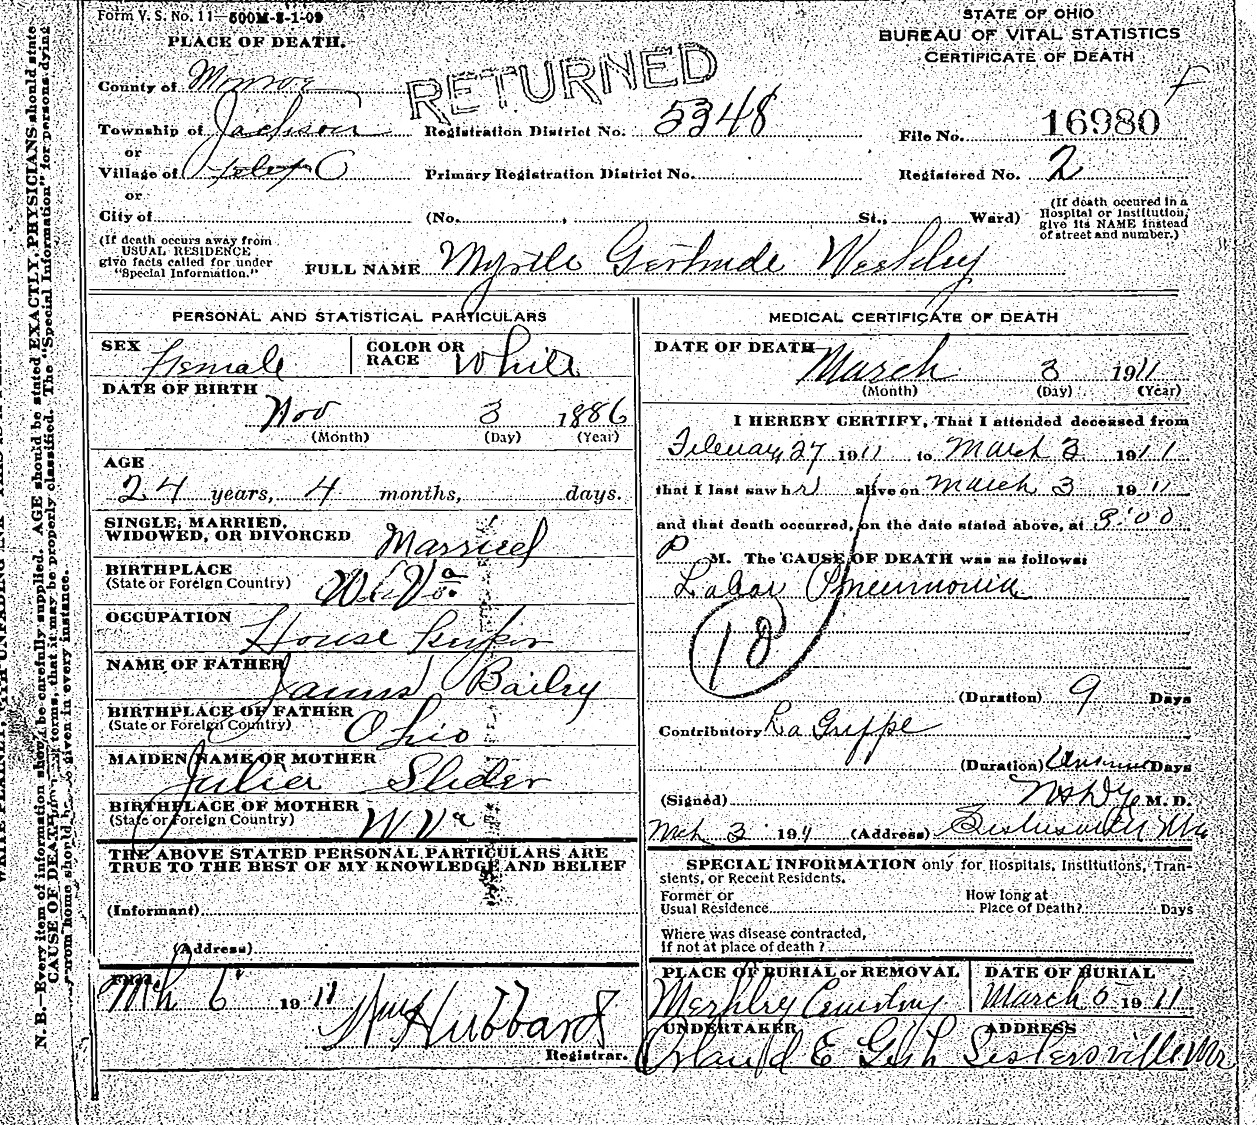 Form V. S. No. 11—500M-8-1-09
STATE OF OHIO
BUREAU OF VITAL STATISTICS
CERTIFICATE OF DEATH
PLACE OF DEATH.
RETURNED
County of Monroe
Township of Jackson Registration District No. 5348 File No. 16980
or
Village of Primary Registration District No. Registered No. 2
or
City of (No. , St., Ward) (If death occured in a Hospital or Institution, give its NAME instead of street and number.)
(If death occurs away from USUAL RESIDENCE give facts called for under "Special Information.")
FULL NAME Myrtle Gertrude Weekley
PERSONAL AND STATISTICAL PARTICULARS
SEX Female COLOR OR RACE White
DATE OF BIRTH
Nov 3 1886
(Month) (Day) (Year)
AGE
24 years, 4 months, days.
SINGLE, MARRIED,
WIDOWED, OR DIVORCED Married
BIRTHPLACE
(State or Foreign Country) W Va
OCCUPATION
House keeper
NAME OF FATHER James Bailey
BIRTHPLACE OF FATHER
(State or Foreign Country) Ohio
MAIDEN NAME OF MOTHER
Julier Slider
BIRTHPLACE OF MOTHER
(State or Foreign Country) W Va
THE ABOVE STATED PERSONAL PARTICULARS ARE
TRUE TO THE BEST OF MY KNOWLEDGE AND BELIEF
(Informant)
(Address)
Filed
Mch 6 1911
Wm Hubbard
Registrar.
MEDICAL CERTIFICATE OF DEATH
DATE OF DEATH
March 3 1911
(Month) (Day) (Year)
I HEREBY CERTIFY, That I attended deceased from
February 27 1911 to March 3 1911
that I last saw her alive on March 3 1911
and that death occurred, on the date stated above, at 3:00
P M. The CAUSE OF DEATH was as follows:
Lobar Pneumonia
(Duration) 9 Days
Contributory La Grippe
(Duration) Days
(Signed) M. D.
Mch 3 1911 (Address) Sistersville W Va
SPECIAL INFORMATION only for Hospitals, Institutions, Tran-
sients, or Recent Residents.
Former or How long at
Usual Residence Place of Death? Days
Where was disease contracted,
If not at place of death?
PLACE OF BURIAL or REMOVAL DATE OF BURIAL
Cemetery March 5 1911
UNDERTAKER ADDRESS
E Gish Sistersville
N. B.—Every item of information should be carefully supplied. AGE should be stated EXACTLY. PHYSICIANS should state
CAUSE OF DEATH in terms, that it may be properly classified. The "Special Information" for persons dying
from home should be given in every instance.